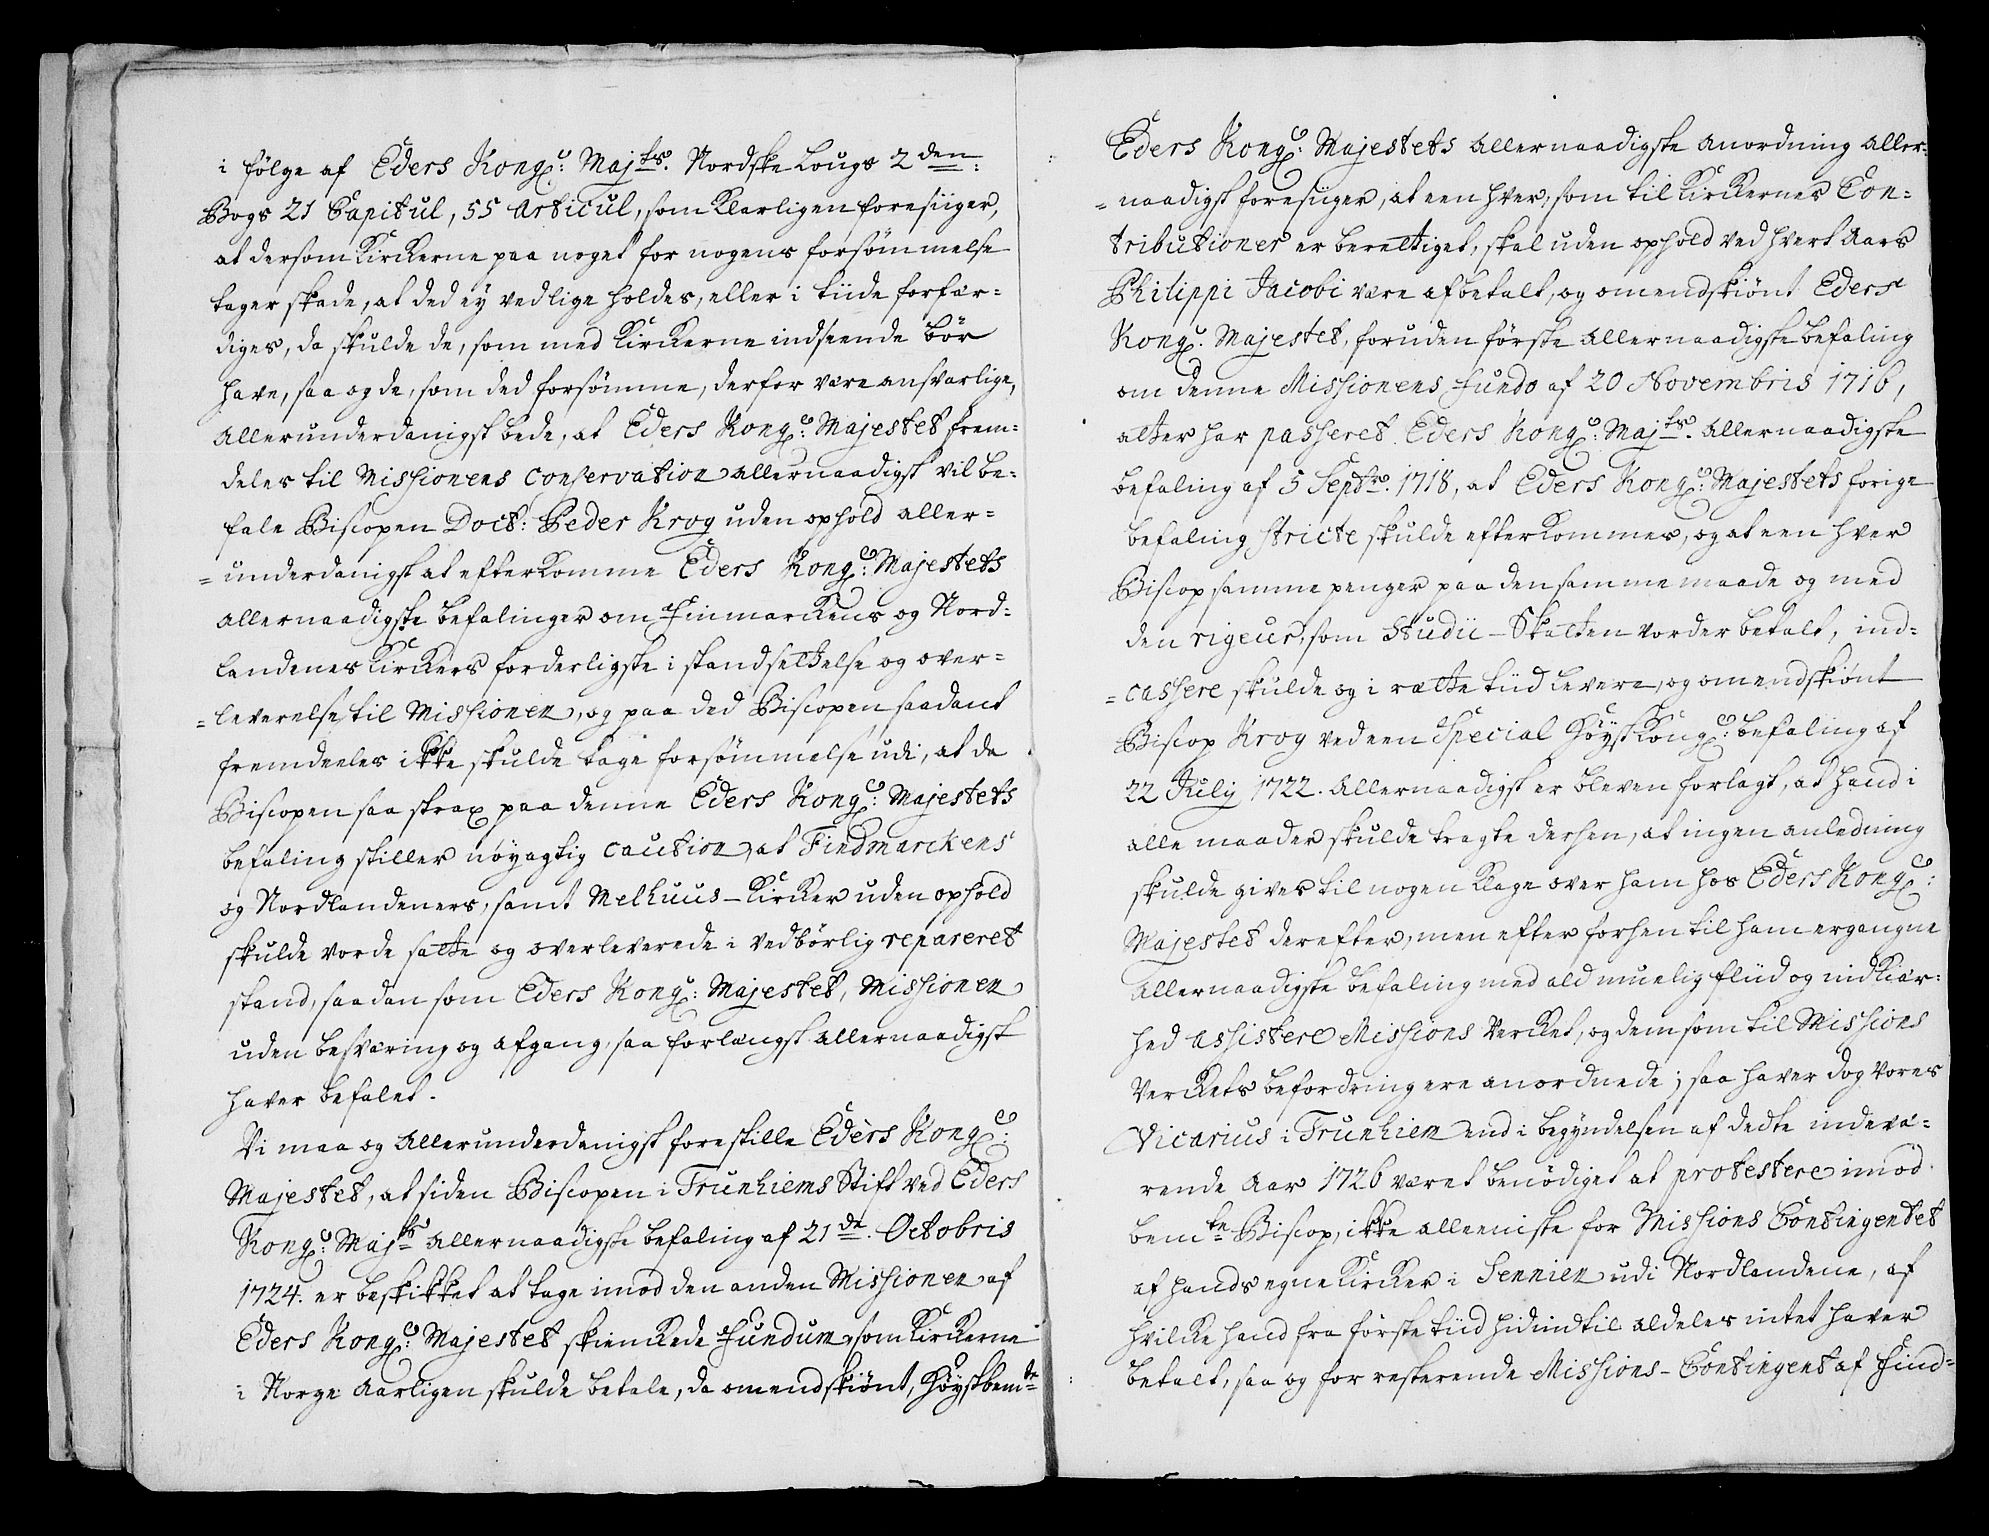 i følge af Eders Kong: Majts. Nordske Lougs 2den:
Bogs 21 Capitul, 55 Articul, som klarligen foresiiger,
at dersom Kirckerne paa noget for nogens forsømmelse
tager skade, at ded ey vedlige holdes, eller i tiide forfær-
diges, da skulde de, som med Kirckerne indseende bør
have, saa og de, som ded forsømme, derfor være ansvarlige,
Allerunderdanigst bede, at Eders Kong: Majestet frem-
deles til Missionens Conservation allernaadigst vil be-
fale Biscopen Doct: Peder Krog uden ophold aller-
=underdanigst at efterkomme Eders Kong: Majestets
allernaadigste befalinger om Finmarckens og Nord-
landenes Kirckers forderligste i stand settelse og over-
=leverelse til Missionen, og paa ded Biscopen saadant
fremdeeles ikke skulde tage forsømmelse udi, at da
Biscopen saa strax paa denne Eders Kong: Majestets
befaling stiller nøyagtig Caution, at Findmarckens
og Nordlandenes, samt Melhuus-Kircker uden ophold
skulde vorde satte og overleverede i vedbørlig repareret
stand, saadan som Eders Kong: Majestet, Missionen
uden besværing og afgang, saa forlængst allernaadigst
haver befalet.
Vi maa og Allerunderdanigst forestille Eders Kong:
Majestet, at siden Biscopen i Trunhiems Stift ved Eders
Kong: Majts allernaadigste befaling af 21de. Octobris
1724. er beskikket at tage imod den anden Missionen af
Eders Kong: Majestet skienckede Fundum, som Kirckerne
i Norge Aarligen skulde betale, da omendskiønt, Høystbemte
Eders Kong: Majestets Allernaadigste Anordning Aller-
=naadigst foresiiger, at een hver, som til Kirckernes Con-
tributioner er berettiget, skal uden ophold ved hvert Aars
Philippi Jacobi være afbetalt, og omendskiønt Eders
Kong: Majestet, foruden første Allernaadigste befaling
om denne Missionens Fundo af 20 Novembris 1716,
atter har passeret Eders Kong: Majts. Allernaadigste
befaling af 5 Septbr. 1718, at Eders Kong: Majestets forige
befaling stricte skulde efterkommes, og at een hver
Biscop samme penger paa den samme maade og med
den rigeur, som Studii-Skatten vorder betalt, ind-
=cassere skulde og i rætte tiid levere, og omendskiønt
Biscop Krog ved een Special Høyst Kong: befaling af
22 July 1722. Allernaadigst er bleven forlagt, at hand i
alle maader skulde tragte derhen, at ingen anledning
skulde gives til nogen Klage over ham hos Eders Kong:
Majestet derefter, men efter forhen til ham ergangne
Allernaadigste befaling med ald muelig fliid og nidkiær-
hed assistere Missions Vercket, og dem som til Missions
Verckets befordring ere anordnede; saa haver dog vores
Vicarius i Trunhiem end i begyndelsen af dette indevæ-
rende Aar 1726 været benødiget at protestere imod
bemte Biscop, ikke alleeniste for Missions Contingentet
af hands egne Kircker i Sennien udi Nordlandene, af
hvilcke hand fra første tiid hidindtil aldeles intet haver
betalt, saa og for resterende Missions-Contingent af Find-